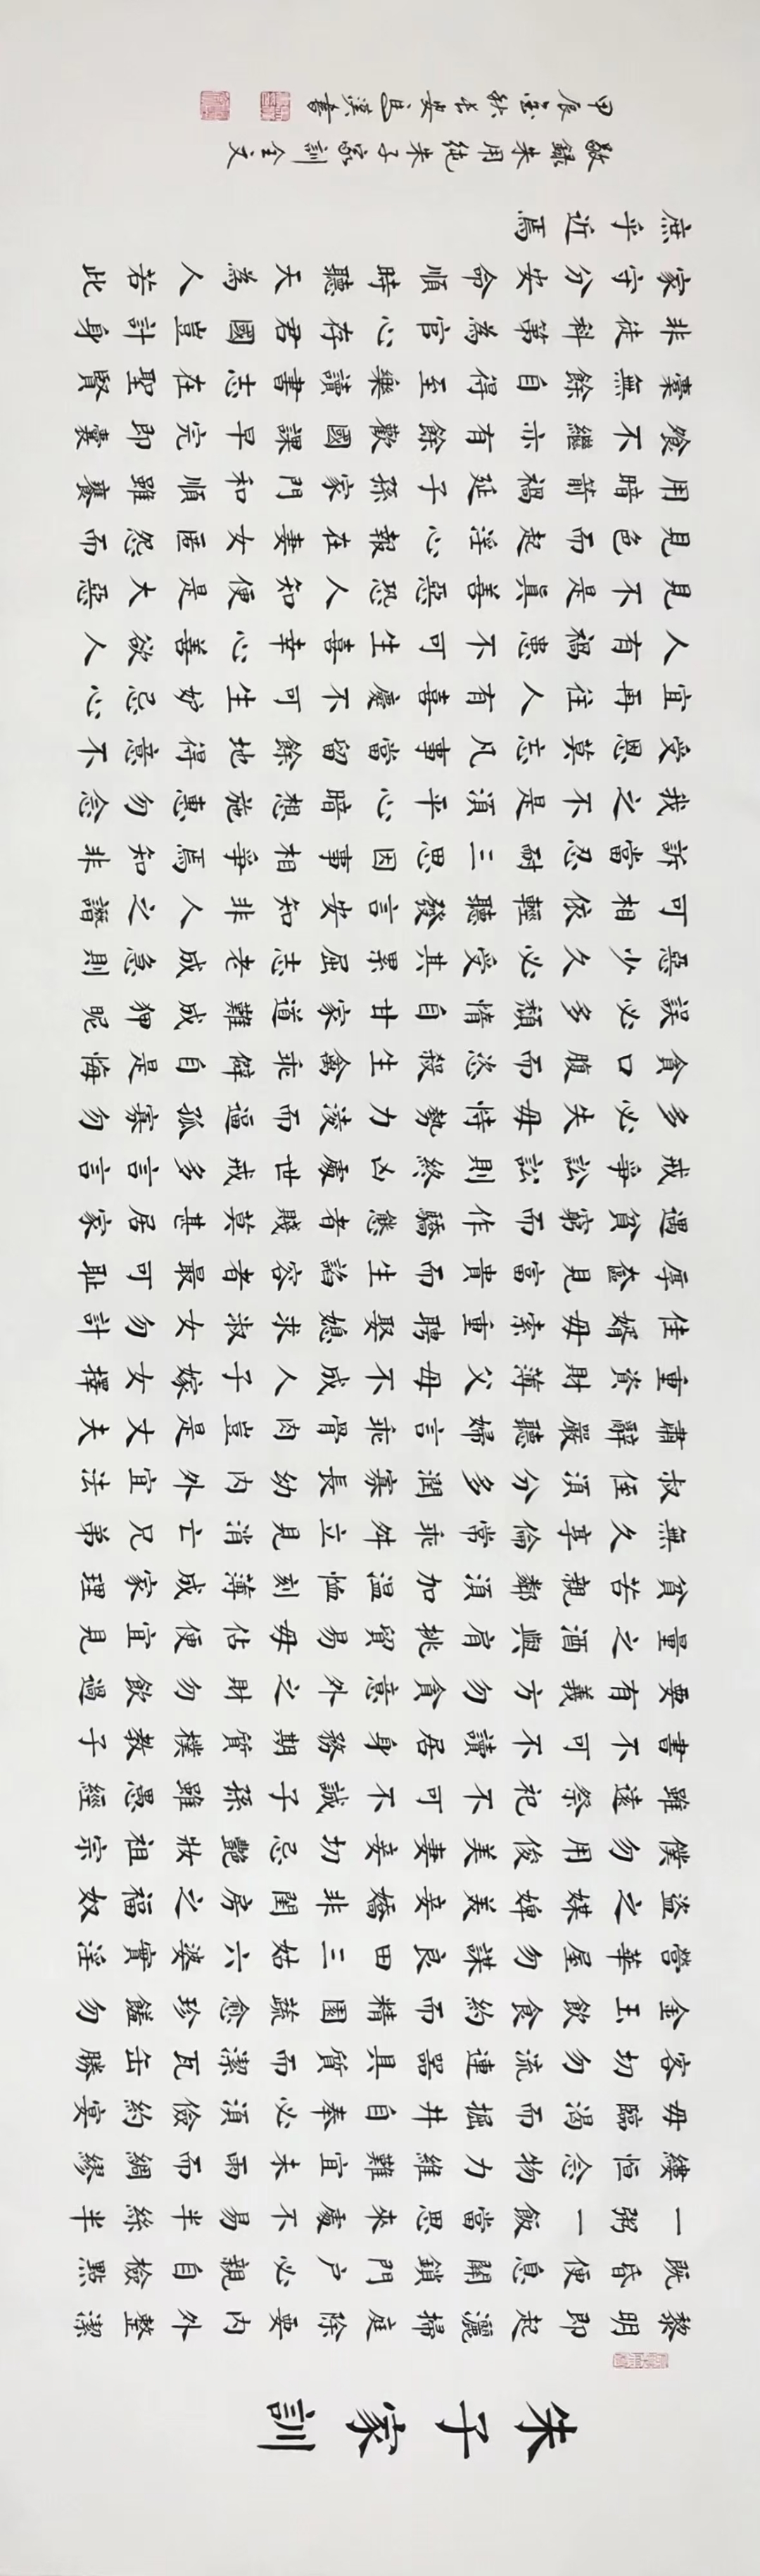 朱子家訓
黎明即起灑掃庭除要內外整潔
既昏便息關鎖門戶必親自檢點
一粥一飯當思來處不易半絲半
縷恒念物力維難宜未雨而綢繆
毋臨渴而掘井自奉必須儉約宴
客切勿流連器具質而潔瓦缶勝
金玉飲食約而精園蔬愈珍饈勿
營華屋勿謀良田三姑六婆實淫
盜之媒婢美妾嬌非閨房之福奴
僕勿用俊美妻妾切忌艷妝祖宗
雖遠祭祀不可不誠子孫雖愚經
書不可不讀居身務期質樸教子
要有義方勿貪意外之財勿飲過
量之酒與肩挑貿易毋佔便宜見
貧苦親鄰須加溫恤刻薄成家理
無久享倫常乖舛立見消亡兄弟
叔侄須分多潤寡長幼內外宜法
肅辭嚴聽婦言乖骨肉豈是丈夫
重資財薄父母不成人子嫁女擇
佳婿毋索重聘娶媳求淑女勿計
厚奩見富貴而生諂容者最可耻
遇貧窮而作驕態者賤莫甚居家
戒爭訟訟則終凶處世戒多言言
多必失毋恃勢力淩而逼孤寡勿
貪口腹而恣殺生禽乖僻自是悔
誤必多頹惰自甘家道難成狎昵
惡少久必受其累屈志老成急則
可相依輕聽發言安知非人之譖
訴當忍耐三思因事相爭焉知非
我之不是須平心暗想施惠勿念
受恩莫忘凡事當留餘地得意不
宜再往人有喜慶不可生妒忌心
人有禍患不可生喜幸心善欲人
見不是真善惡恐人知便是大惡
見色而起淫心報在妻女匿怨而
用暗箭禍延子孫家門和順雖饔
飧不繼亦有餘歡國課早完即囊
橐無餘自得至樂讀書志在聖賢
非徒科第為官心存君國豈計身
家守分安命順時聽天為人若此
庶乎近焉
敬錄朱用純朱子家訓全文
甲辰金秋長安馬漢書